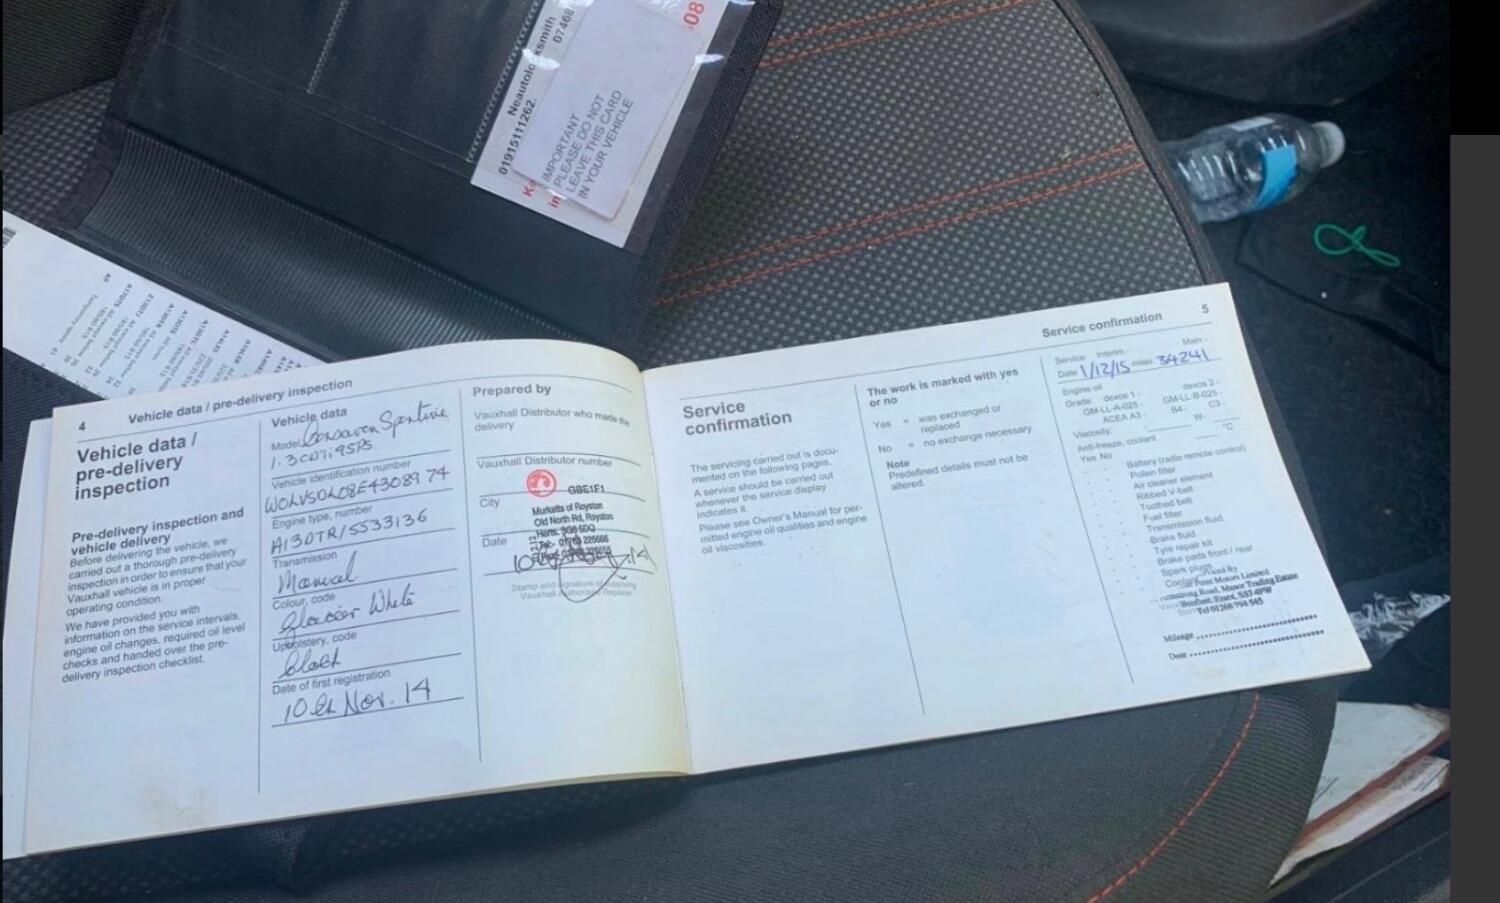 Neautolo ksmith
01915111262. 07468
08
IMPORTANT
PLEASE DO NOT
LEAVE THIS CARD
IN YOUR VEHICLE
4 Vehicle data / pre-delivery inspection
Vehicle data /
pre-delivery
inspection
Pre-delivery inspection and
vehicle delivery
Before delivering the vehicle, we
carried out a thorough pre-delivery
inspection in order to ensure that your
Vauxhall vehicle is in proper
operating condition.
We have provided you with
information on the service intervals,
engine oil changes, required oil level
checks and handed over the pre-
delivery inspection checklist.
Vehicle data
Model
1.3CDTi 95PS
Vehicle identification number
W0LVS0L08E4308974
Engine type, number
A130TR/5533136
Transmission
Manual
Colour, code
Glacier White
Upholstery, code
Date of first registration
10th Nov. 14
Prepared by
Vauxhall Distributor who made the
delivery
Vauxhall Distributor number
GBE1F1
City
Murketts of Royston
Old North Rd, Royston
Herts. SG8 5DQ
Date
Stamp and signature of supplying
Vauxhall Authorised Repairer
Service confirmation 5
Service
confirmation
The servicing carried out is docu-
mented on the following pages.
A service should be carried out
whenever the service display
indicates it.
Please see Owner's Manual for per-
mitted engine oil qualities and engine
oil viscosities.
The work is marked with yes
or no
Yes = was exchanged or
replaced
No = no exchange necessary
Note
Predefined details must not be
altered.
Service: Interim - Main -
Date 1/12/15 miles 34241
Engine oil
Grade: dexos 1 - dexos 2 -
GM-LL-A-025 - GM-LL-B-025 -
ACEA A3 - B4- C3 -
Viscosity: W-
Anti-freeze, coolant °C
Yes No
Battery (radio remote control)
Pollen filter
Air cleaner element
Ribbed V-belt
Toothed belt
Fuel filter
Transmission fluid
Brake fluid
Tyre repair kit
Brake pads front / rear
Spark plugs
Point Motors Limited
Road, Manor Trading Estate
Benfleet, Essex, SS7 4PW
Tel 01268 794 565
Mileage
Date